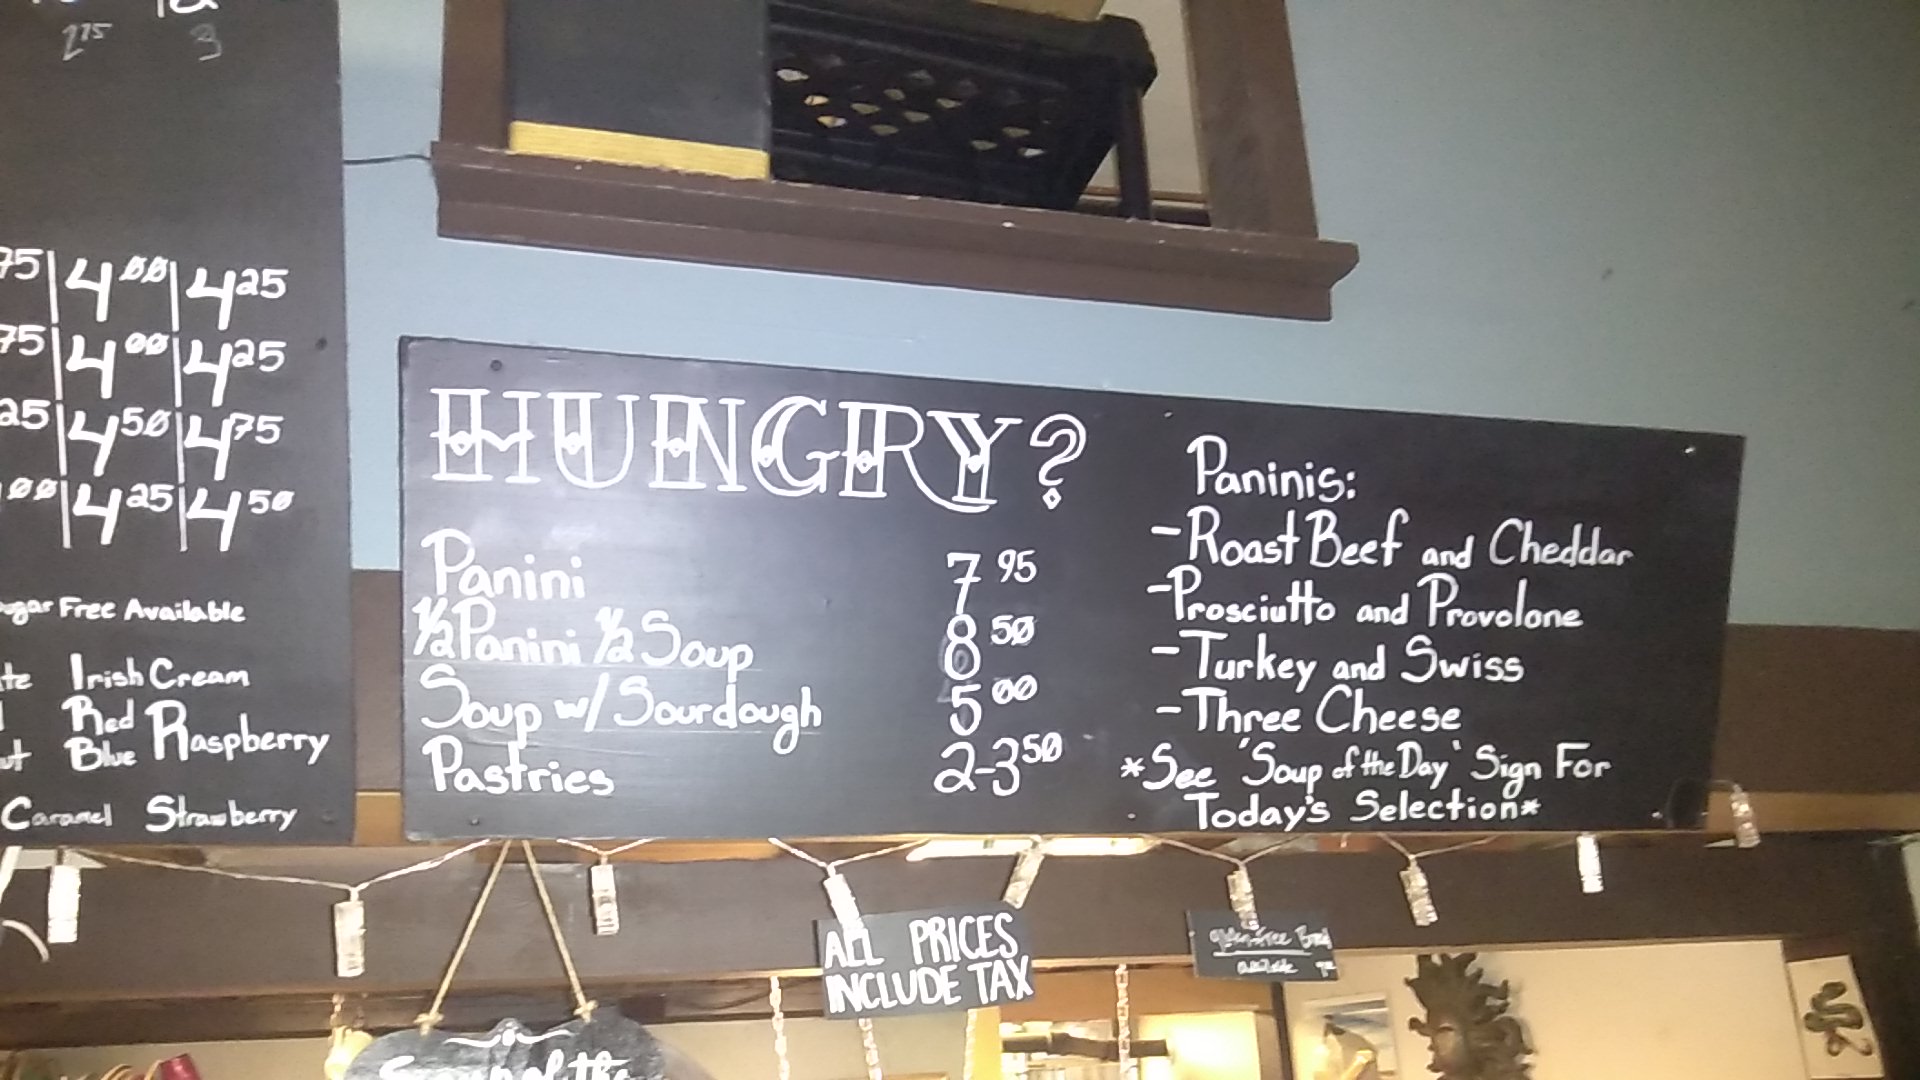 2 75 3
75 4 00 4 25
75 4 00 4 25
25 4 50 4 75
00 4 25 4 50
Free Available
Irish Cream
Red
Blue Raspberry
Caramel Strawberry
HUNGRY?
Panini 7 95
1/2 Panini 1/2 Soup 8 50
Soup w/ Sourdough 5 00
Pastries 2-3 50
Paninis:
-Roast Beef and Cheddar
-Prosciutto and Provolone
-Turkey and Swiss
-Three Cheese
*See 'Soup of the Day' Sign For
Today's Selection*
ALL PRICES
INCLUDE TAX
gluten-free Bread
available
of the